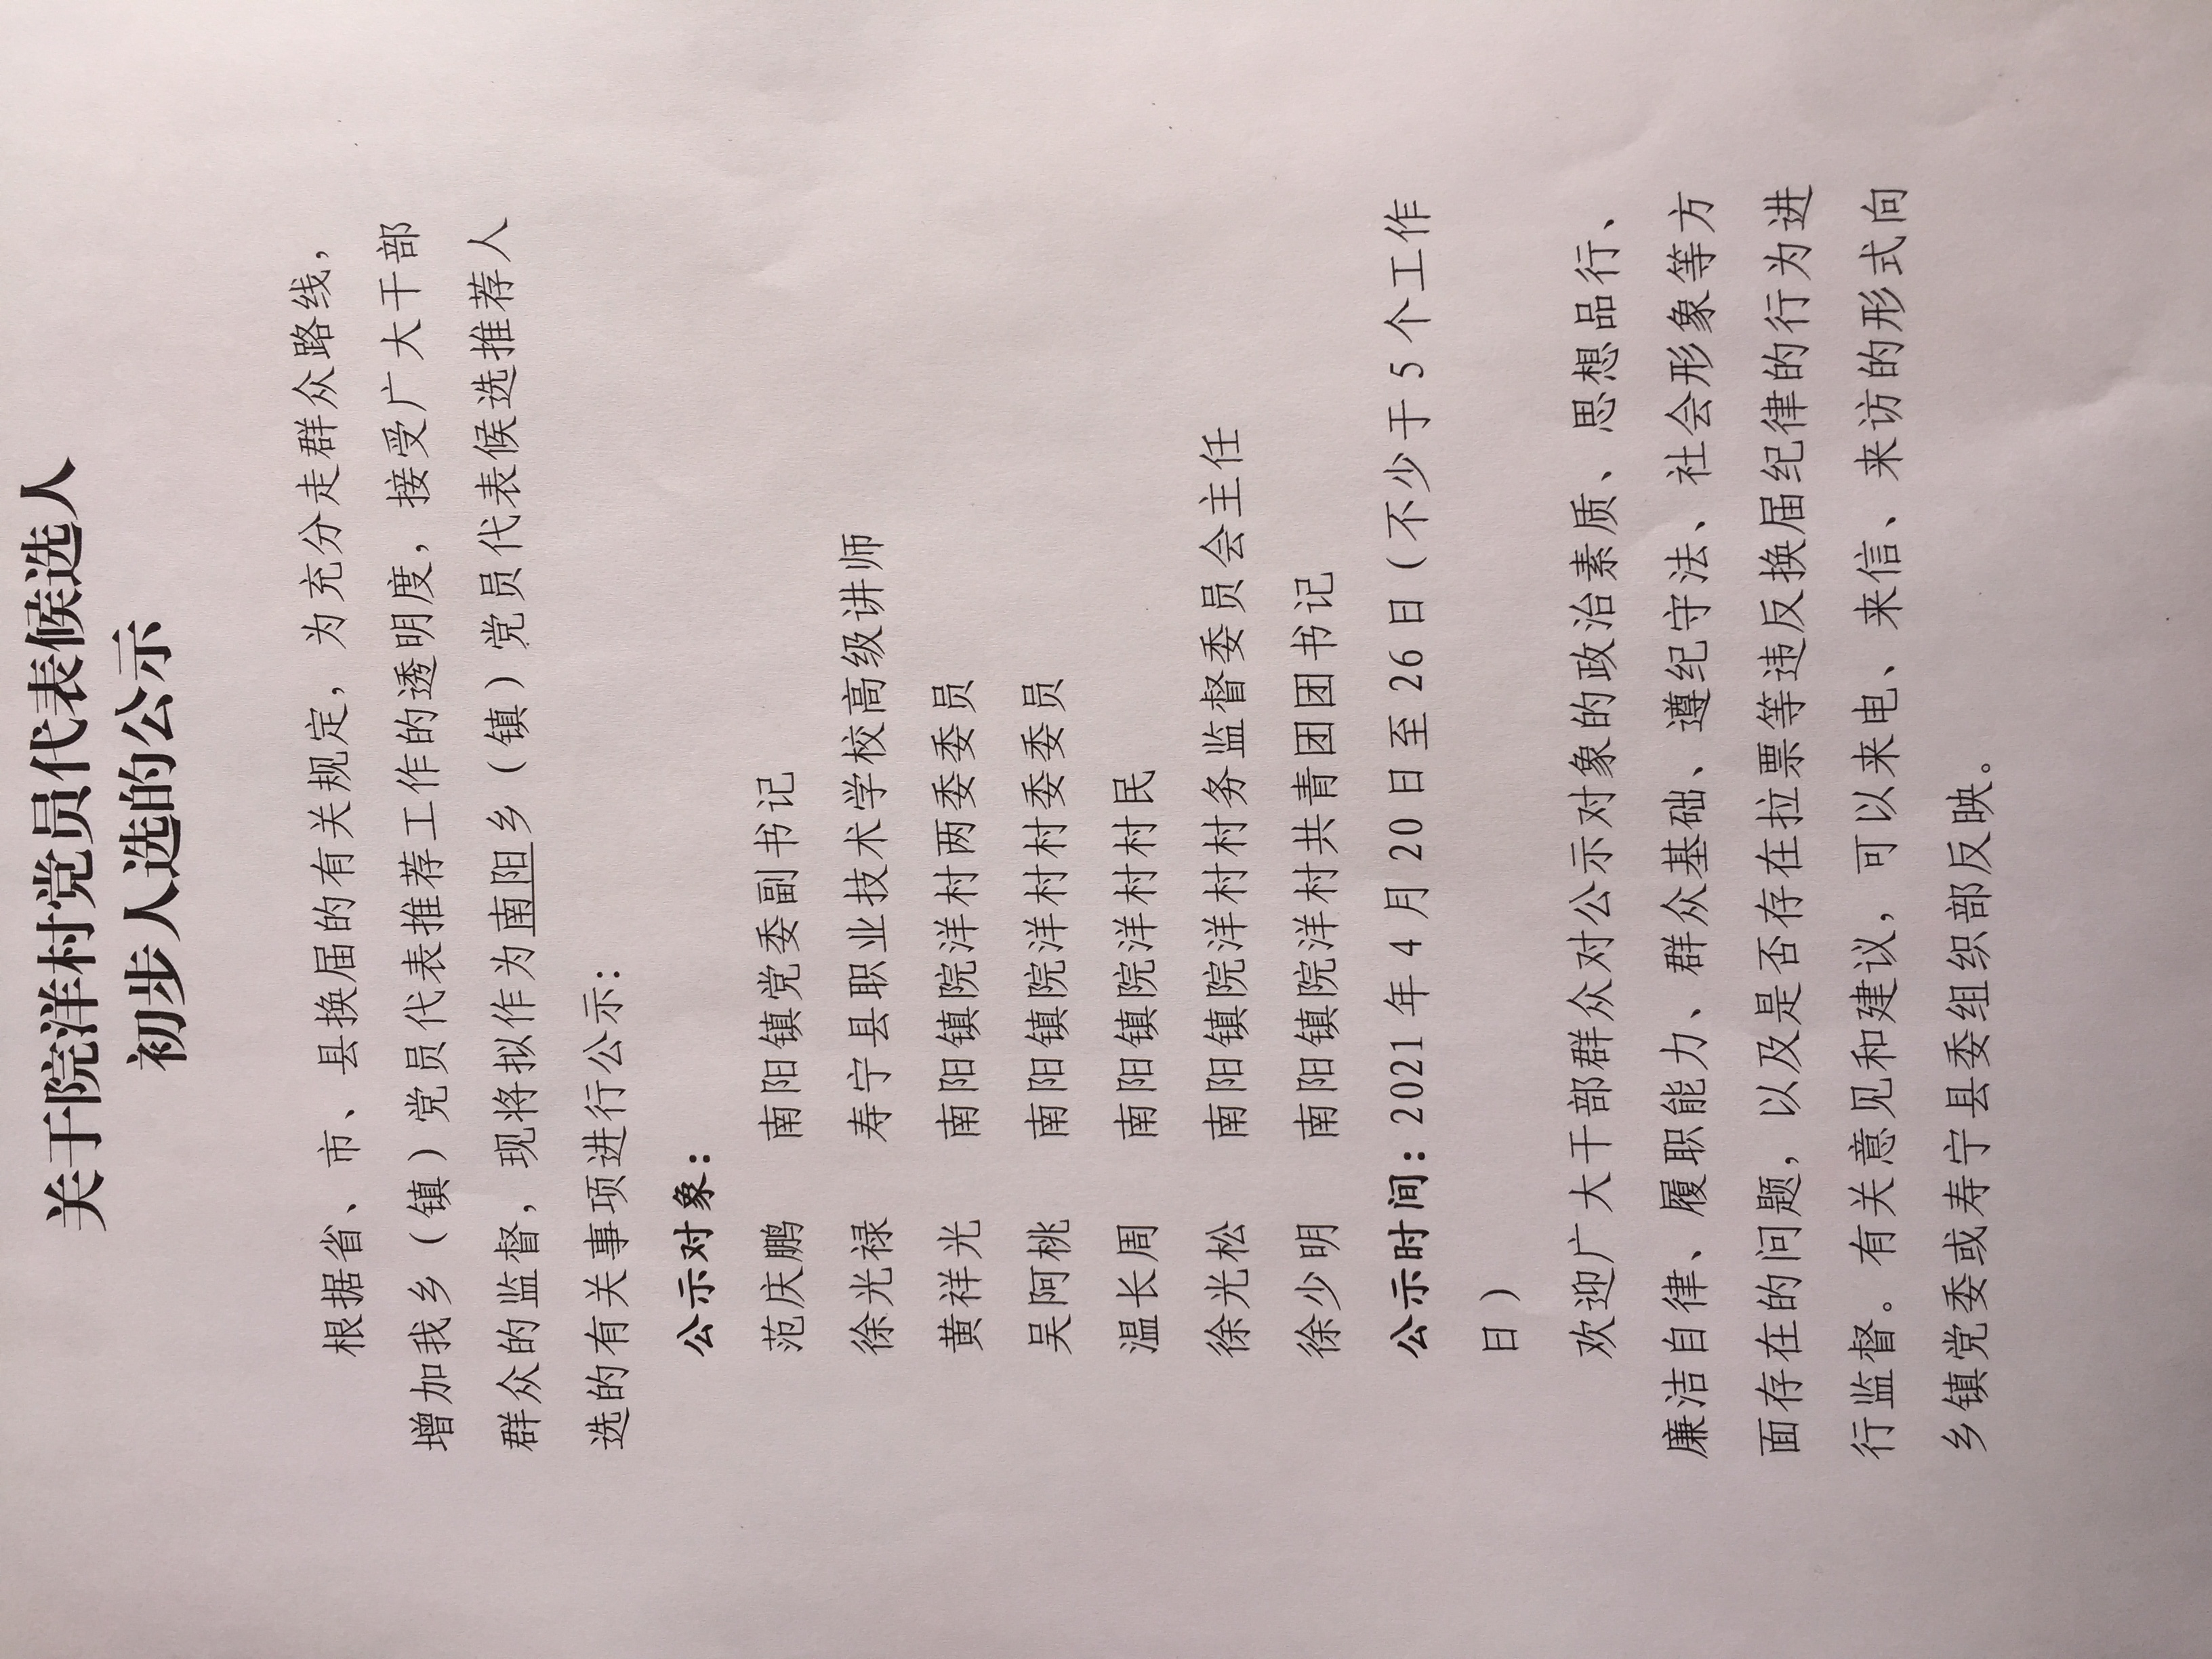 关于院洋村党员代表候选人
初步人选的公示
根据省、市、县换届的有关规定，为充分走群众路线，
增加我乡（镇）党员代表推荐工作的透明度，接受广大干部
群众的监督，现将拟作为南阳乡（镇）党员代表候选推荐人
选的有关事项进行公示：
公示对象：
范庆鹏 南阳镇党委副书记
徐光禄 寿宁县职业技术学校高级讲师
黄祥光 南阳镇院洋村两委委员
吴阿桃 南阳镇院洋村村委委员
温长周 南阳镇院洋村村民
徐光松 南阳镇院洋村村务监督委员会主任
徐少明 南阳镇院洋村共青团团书记
公示时间：2021 年 4 月 20 日至 26 日（不少于 5 个工作
日）
欢迎广大干部群众对公示对象的政治素质、思想品行、
廉洁自律、履职能力、群众基础、遵纪守法、社会形象等方
面存在的问题，以及是否存在拉票等违反换届纪律的行为进
行监督。有关意见和建议，可以来电、来信、来访的形式向
乡镇党委或寿宁县委组织部反映。